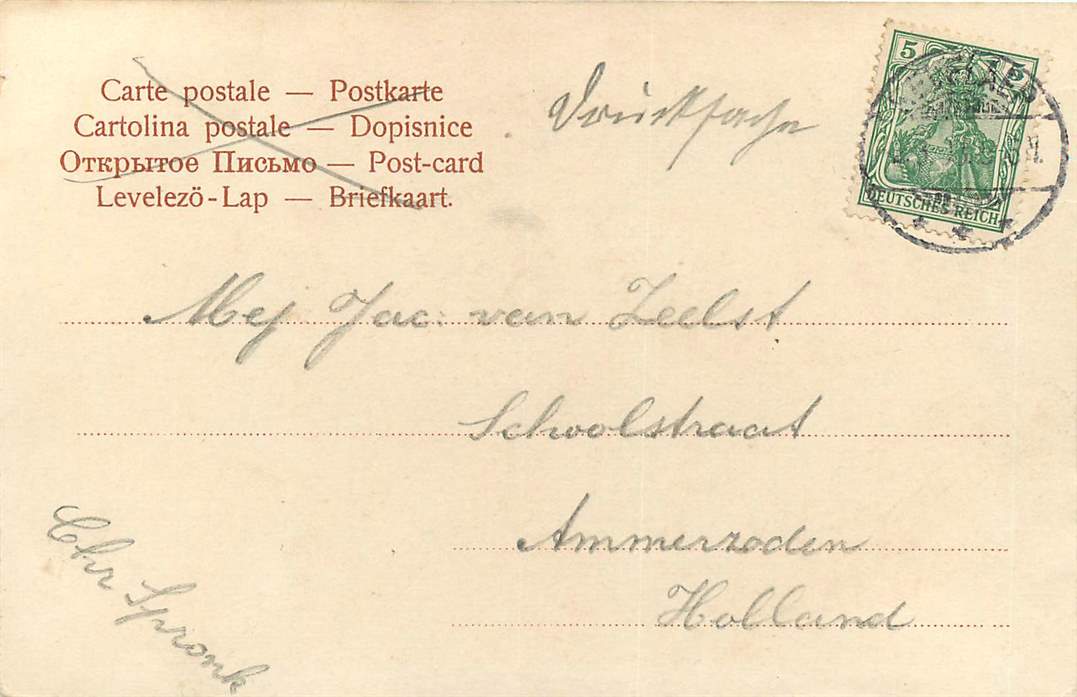 Carte postale — Postkarte
Cartolina postale — Dopisnice
Открытое Письмо — Post-card
Levelező-Lap — Briefkaart.
Drucksache
5 5
DEUTSCHES REICH
Mej Jac: van Zeelst
Schoolstraat
Ammerzoden
Holland
Chr Spronk